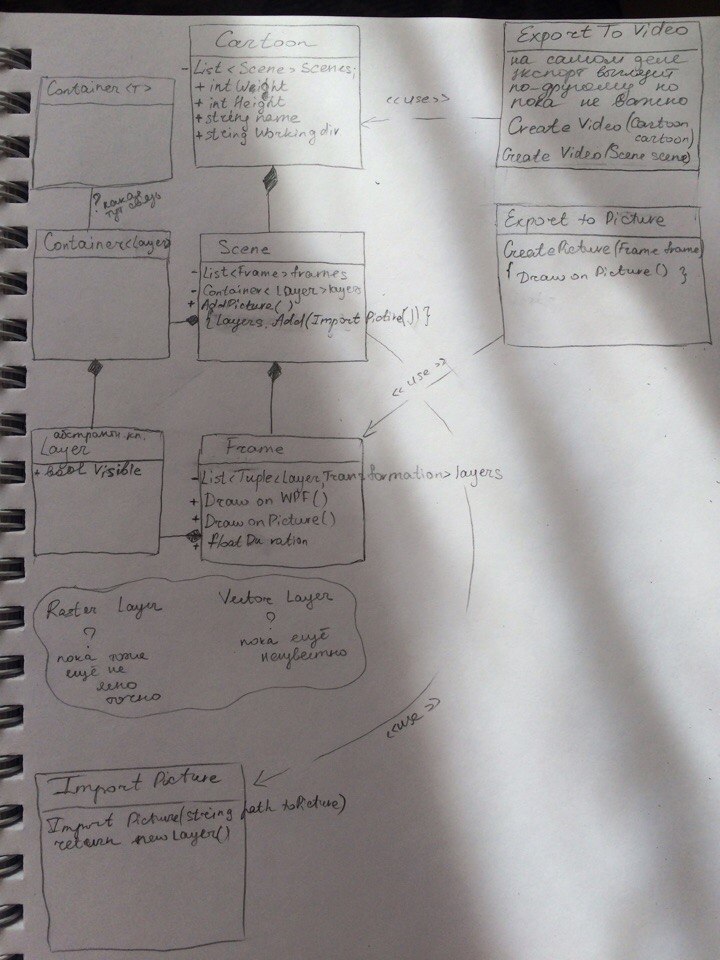 Cartoon
- List<Scene> Scenes;
+ int Weight
+ int Height
+ string name
+ string Working dir
Export To Video
на самом деле
экспорт выглядит
по-другому но
пока не важно
Create Video (Cartoon
cartoon)
Create Video (Scene scene)
<<use>>
Container<T>
? какая
тут связь
Container<Layer>
Scene
- List<Frame> frames
- Container<Layer> layers
+ AddPicture()
{Layers.Add(Import Pictire())}
Export to Picture
CreatePicture (Frame frame)
{ Draw on Picture() }
<<use>>
абстрактн. кл.
Layer
+ bool Visible
Frame
- List<Tuple<Layer, Transformation>> layers
+ Draw on WPF()
+ Draw on Picture()
+ float Duration
Raster Layer
?
пока тоже
ещё не
ясно
точно
Vector Layer
?
пока ещё
неизвестно
<<use>>
Import Picture
Import Picture(string path toPicture)
return new Layer()